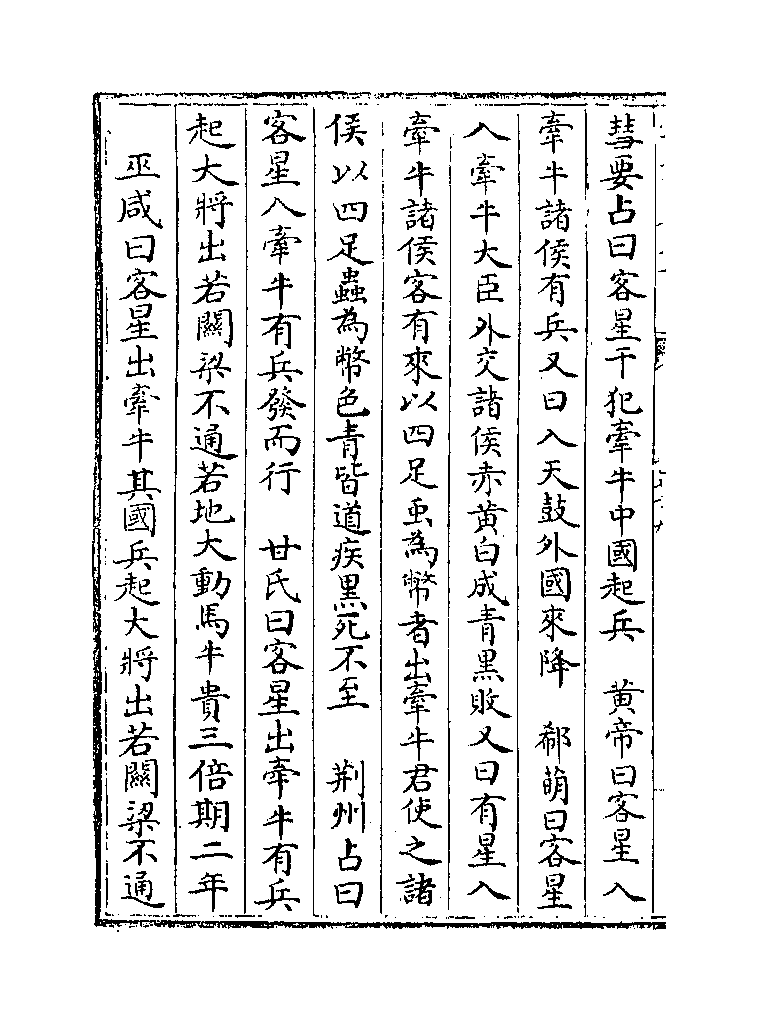 彗要占曰客星干犯牽牛中國起兵　黄帝曰客星入
牽牛諸侯有兵又曰入天鼓外國來降　郗萌曰客星
入牽牛大臣外交諸侯赤黄白成青黒敗又曰有星入
牽牛諸侯客有來以四足䖝為幣者出牽牛君使之諸
侯以四足蟲為幣色青皆道疾黒死不至　荆州占曰
客星入牽牛有兵發而行　甘氏曰客星出牽牛有兵
起大將出若闗梁不通若地大動馬牛貴三倍期二年
巫咸曰客星出牽牛其國兵起大將出若闗梁不通